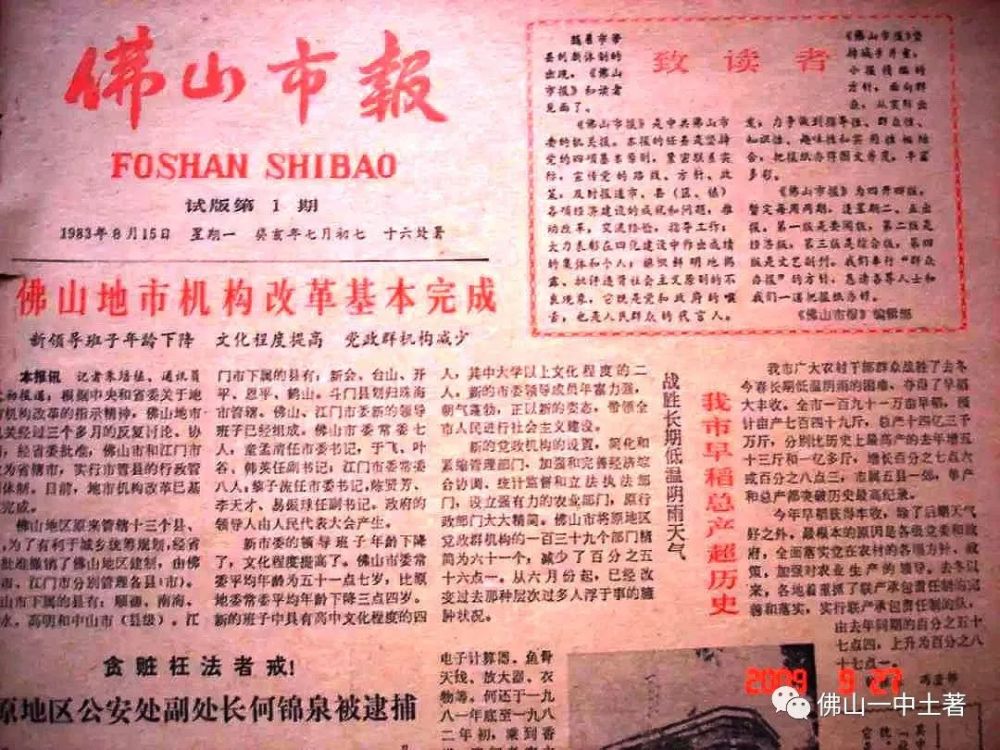 佛山市報
FOSHAN SHIBAO
试版第1期
1983年8月15日 星期一 癸亥年七月初七 十六处暑
致读者
随着市带
县到新体制的
出现，《佛山
市报》和读者
见面了。
《佛山市报》是中共佛山市
委的机关报。本报的任务是坚持
党的四项基本原则，紧密联系实
际，宣传党的路线、方针、政
策，及时报道市、县（区、镇）
各项经济建设的成就和问题，推
动改革，交流经验，指导工作；
大力表彰在四化建设中作出成绩
的集体和个人；旗帜鲜明地揭
露、批评违背社会主义原则的不
良现象，它既是党和政府的喉
舌，也是人民群众的代言人。
《佛山市报》坚
持城乡并重，
小报精编的
方针，面向群
众，从实际出
发，力争做到指导性、群众性、
知识性、趣味性和实用性相结
合，把报纸办得图文并茂，丰富
多彩。
《佛山市报》为四开四版，
暂定每周两期，逢星期二、五出
报。第一版是要闻版，第二版是
经济版，第三版是综合版，第四
版是文艺副刊。我们奉行“群众
办报”的方针，恳请各界人士和
我们一道把报纸办好。
《佛山市报》编辑部
佛山地市机构改革基本完成
新领导班子年龄下降 文化程度提高 党政群机构减少
本报讯 记者朱培植、通讯员
报道：根据中央和省委关于地
机构改革的指示精神，佛山地市
关经过三个多月的反复讨论、协
，经省委批准，佛山市和江门市
为省辖市，实行市管县的行政管
体制。目前，地市机构改革已基
完成。
佛山地区原来管辖十三个县、
，为了有利于城乡统筹规划，经省
批准撤销了佛山地区建制，由佛
、江门市分别管理各县（市）。
山市下属的县有：顺德、南海、
水、高明和中山市（县级）。江
门市下属的县有：新会、台山、开
平、恩平、鹤山。斗门县划归珠海
市管辖。佛山、江门市委新的领导
班子已经组成。佛山市委常委七
人，童孟清任市委书记，于飞、叶
谷、韩英任副书记；江门市委常委
八人；黎子流任市委书记，陈贤芳、
李天才、易振球任副书记。政府的
领导人由人民代表大会产生。
新市委的领导班子年龄下降
了，文化程度提高了。佛山市委常
委平均年龄为五十一点七岁，比原
地委常委平均年龄下降三点四岁。
新的班子中具有高中文化程度的四
人，其中大学以上文化程度的二
人。新的市委领导成员年富力强，
朝气蓬勃，正以新的姿态，带领全
市人民进行社会主义建设。
新的党政机构的设置，简化和
紧缩管理部门，加强和完善经济综
合协调、统计监督和立法执法部
门，设立强有力的农业部门，原行
政部门大大精简。佛山市将原地区
党政群机构的一百三十九个部门精
简为六十一个，减少了百分之五
十六点一。从六月份起，已经改
变过去那种层次过多人浮于事的臃
肿状况。
战胜长期低温阴雨天气
我市早稻总产超历史
我市广大农村干部群众战胜了去冬
今春长期低温阴雨的困难，夺得了早稻
大丰收。全市一百九十一万亩早稻，预
计亩产七百四十九斤，总产十四亿三千
万斤，分别比历史上最高产的去年增五
十三斤和一亿多斤，增长百分之七点六
或百分之八点三，市属五县一郊，单产
和总产都突破历史最高纪录。
今年早稻获得丰收，除了后期天气
好之外，最根本的原因是各级党委和政
府，全面落实党在农村的各项方针、政
策，加强对农业生产的领导。去冬以
来，各地着重抓了联产承包责任制的完
善和落实，实行联产承包责任制的队，
由去年同期的百分之五十
七点四，上升为百分之八
十七点一。
贪赃枉法者戒！
原地区公安处副处长何锦泉被逮捕
电子计算器、鱼骨
天线、放大器、衣
物等。何还于一九
八一年底至一九八
二年初，乘到香
2009 9 27
佛山一中土著